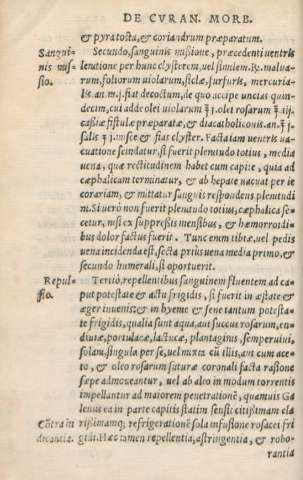 DE CVRAN. MORB.
& pyra tosta, & coriandrum præparatum.
Sangui-
nis mis-
sio.
Secundo, sanguinis missione, præcedenti ventris
lenitione per hunc clysterem, vel similem. ℞. malua-
rum, foliorum violarum, siclæ, furfuris, mercuria-
lis. an. m. j. fiat decoctum, de quo accipe vncias quin-
decim, cui adde olei violarum ℥ j. olei rosarum ℥ iij.
cassiæ fistulæ præparatæ, & diacatholiconis. an. ℥ j.
salis ʒ j. misce & fiat clyster. Facta iam ventris va-
cuatione scindatur, si fuerit plenitudo totius, media
vena, quæ rectitudinem habet cum capite, quia ad
cæphalicam terminatur, & ab hepate vacuat per ie
corariam, & mittatur sanguis respondens plenitudi
ni. Si verò non fuerit plenitudo totius, cæphalica se-
cetur, nisi ex suppressis mensibus, & hæmorroidi-
bus dolor factus fuerit. Tunc enim tibiæ, vel pedis
vena incidenda est, secta prius vena media primo, &
secundo humerali, si oportuerit.
Repul-
sio.
Tertiò, repellentibus sanguinem fluentem ad ca-
put potestate & actu frigidis, si fuerit in æstate &
æger iuuenis: & in hyeme & sene tantum potesta-
te frigidis, qualia sunt aqua, aut succus rosarum, en-
diuiæ, portulacæ, lactucæ, plantaginis, semperuiui,
solani, singula per se, vel mixta cũ illis, aut cum ace-
to, & oleo rosarum suturæ coronali facta rasione
sæpe admoueantur, vel ab alto in modum torrentis
impellantur ad maiorem penetrationẽ, quamuis Ga
lenus ea in parte capitis statim sensit citissimam cla
Cõtra in
dicantia.
rissimamq; refrigerationẽ sola infusione rosacei fri
gidi. Hæc tamen repellentia, astringentia, & robo-
rantia